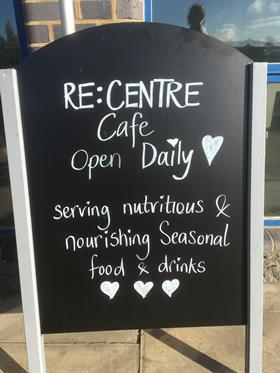 RE:CENTRE
Cafe
Open Daily
serving nutritious &
nourishing Seasonal
food & drinks